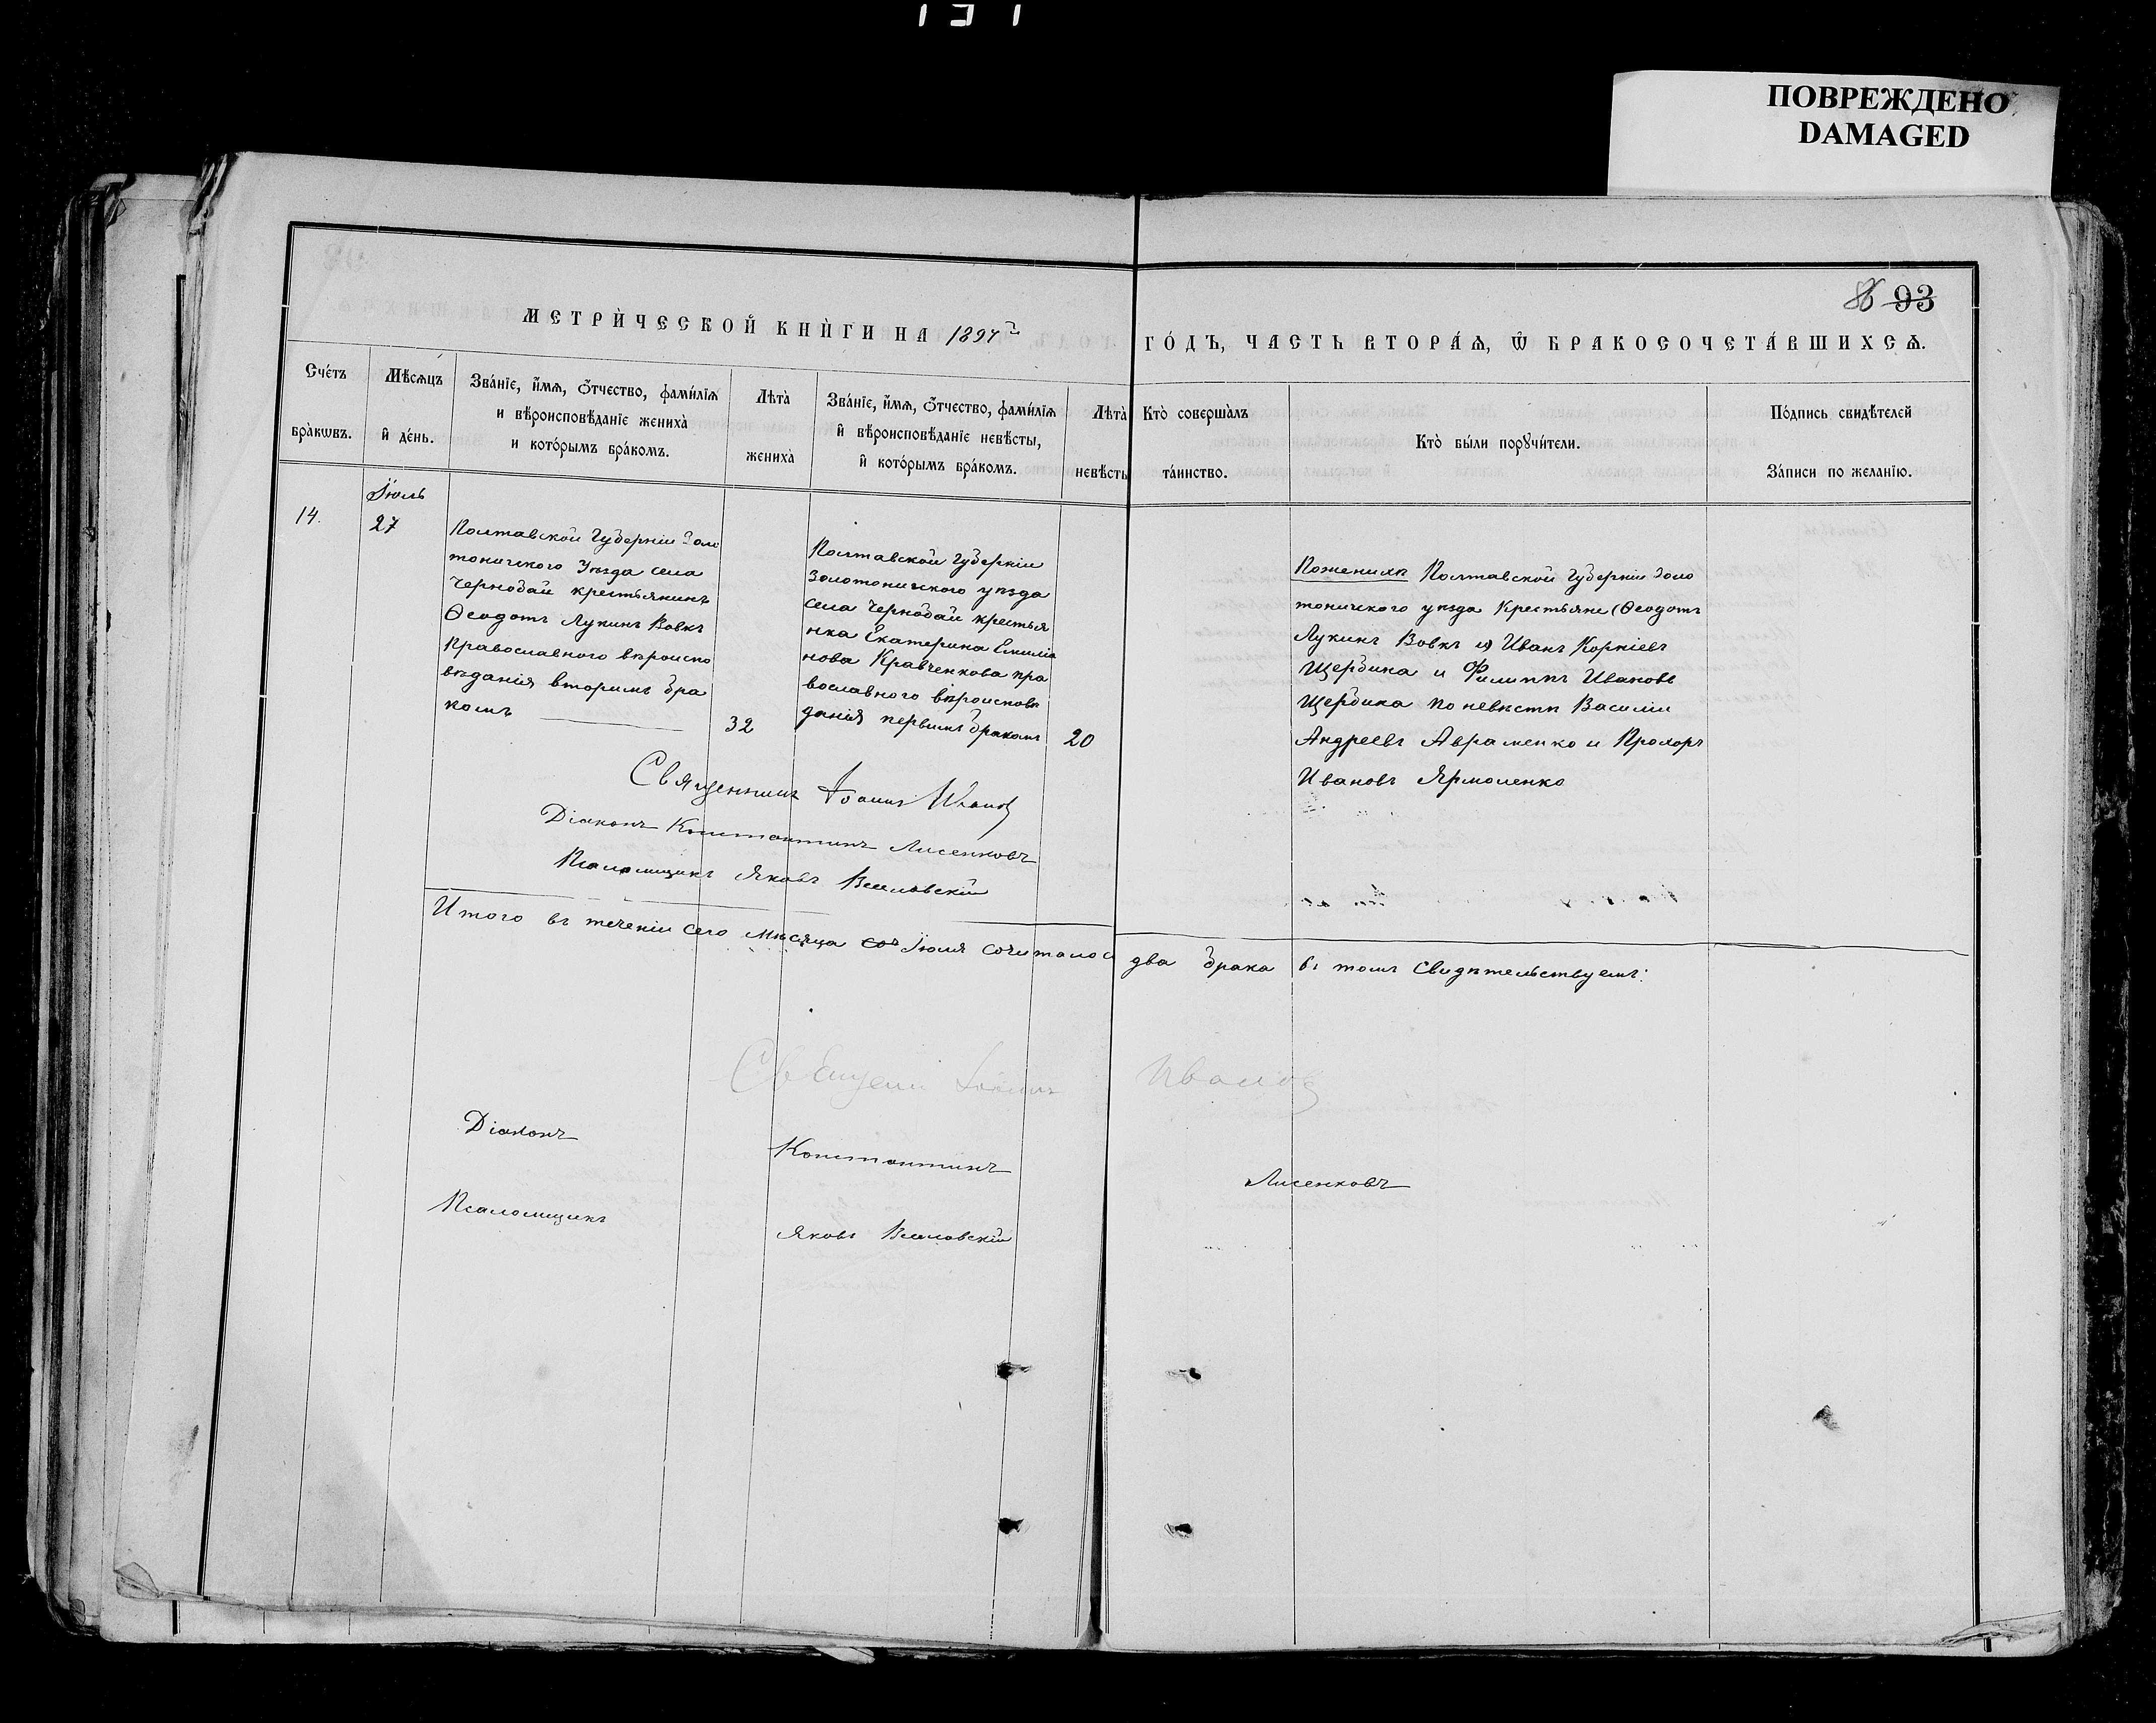 ПОВРЕЖДЕНО
DAMAGED
93
МЕТРИ́ЧЕСКОЙ КНИ́ГИ НА 1897
ГО́ДЪ, ЧАСТЬ ВТОРА́Ѧ, Ѿ БРАКОСОЧЕТА́ВШИХСѦ.
Сче́тъ бра́кѡвъ.
Мѣ́сѧцъ и҆ де́нь.
Зва́нїе, и҆́мѧ, ѻ҆́тчество, фами́лїѧ
и вѣроисповѣ́данїе жениха̀
и кото́рымъ бра́комъ.
Лѣта̀ жениха̀
Зва́нїе, и҆́мѧ, ѻ҆́тчество, фами́лїѧ
и҆ вѣроисповѣ́данїе невѣ́сты,
и҆ кото́рымъ бра́комъ.
Лѣта̀ невѣ́сты
Кто̀ соверша́лъ та́инство.
Кто̀ бы́ли порꙋчи́тели.
По́дпись свидѣ́телей За́писи по жела́нїю.
Іюль
14.
27
Полтавской Губерніи Золо
тонискаго Уѣзда села
Чернобай крестьянинъ
Ѳеодотъ Лукинъ Вовкъ
Православного вѣроиспо
вѣданія вторимъ бра
комъ
32
Полтавской Губерніи
Золотонискаго уѣзда
села Чернобай крестья
нка Екатерина Емилія
нова Кравченкова пра
вославного вѣроисповѣ
данія первимъ бракомъ
20
По женихѣ Полтавской Губерніи Золо
тонискаго уѣзда Крестьяне Ѳеодотъ
Лукинъ Вовкъ Иванъ Корніевъ
Щербина и Филиппъ Ивановъ
Щербина По невѣстѣ Василій
Андреевъ Авраменко и Прохоръ
Ивановъ Ярмоленко
Священникъ Іоаннъ Ивановъ
Діаконъ Константинъ Лисенковъ
Псаломщикъ Яковъ
Итого въ теченіи сего мѣсяца Іюля сочиталось два брака въ томъ свидѣтельствуемъ:
Іоаннъ Ивановъ
Діаконъ Константинъ Лисенковъ
Псаломщикъ Яковъ